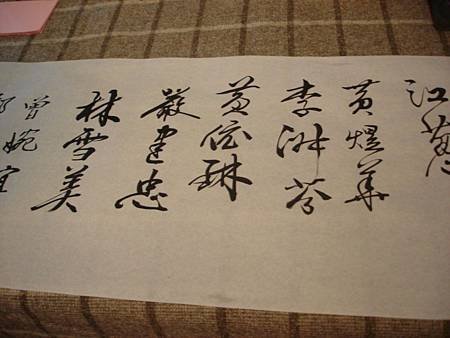 江
黃煜華
李淑芬
黃琳
嚴建忠
林雪美
曾婉宜